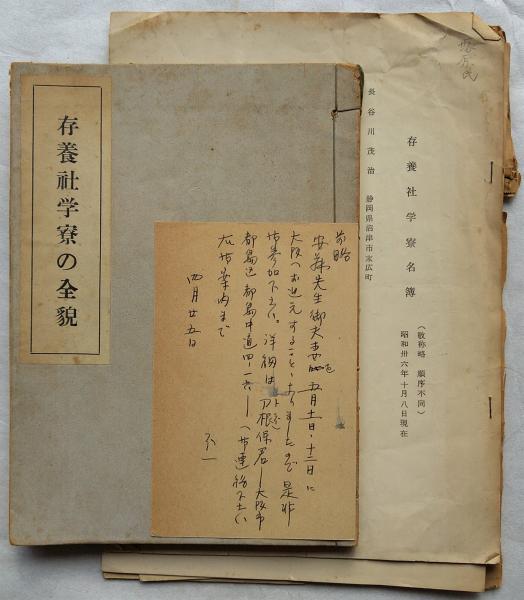 存養社学寮の全貌
存養社学寮名簿
(敬称略　順序不同)
昭和卅六年十月八日現在
長谷川茂治　静岡県沼津市末広町
前略
安藤先生御夫妻を五月十一日・十二日に
大阪へお迎えすること
御参加下さい。詳細は刀根保君―大阪市
都島区都島中道四・一六―へ御連絡下さい
右御案内まで
四月廿五日